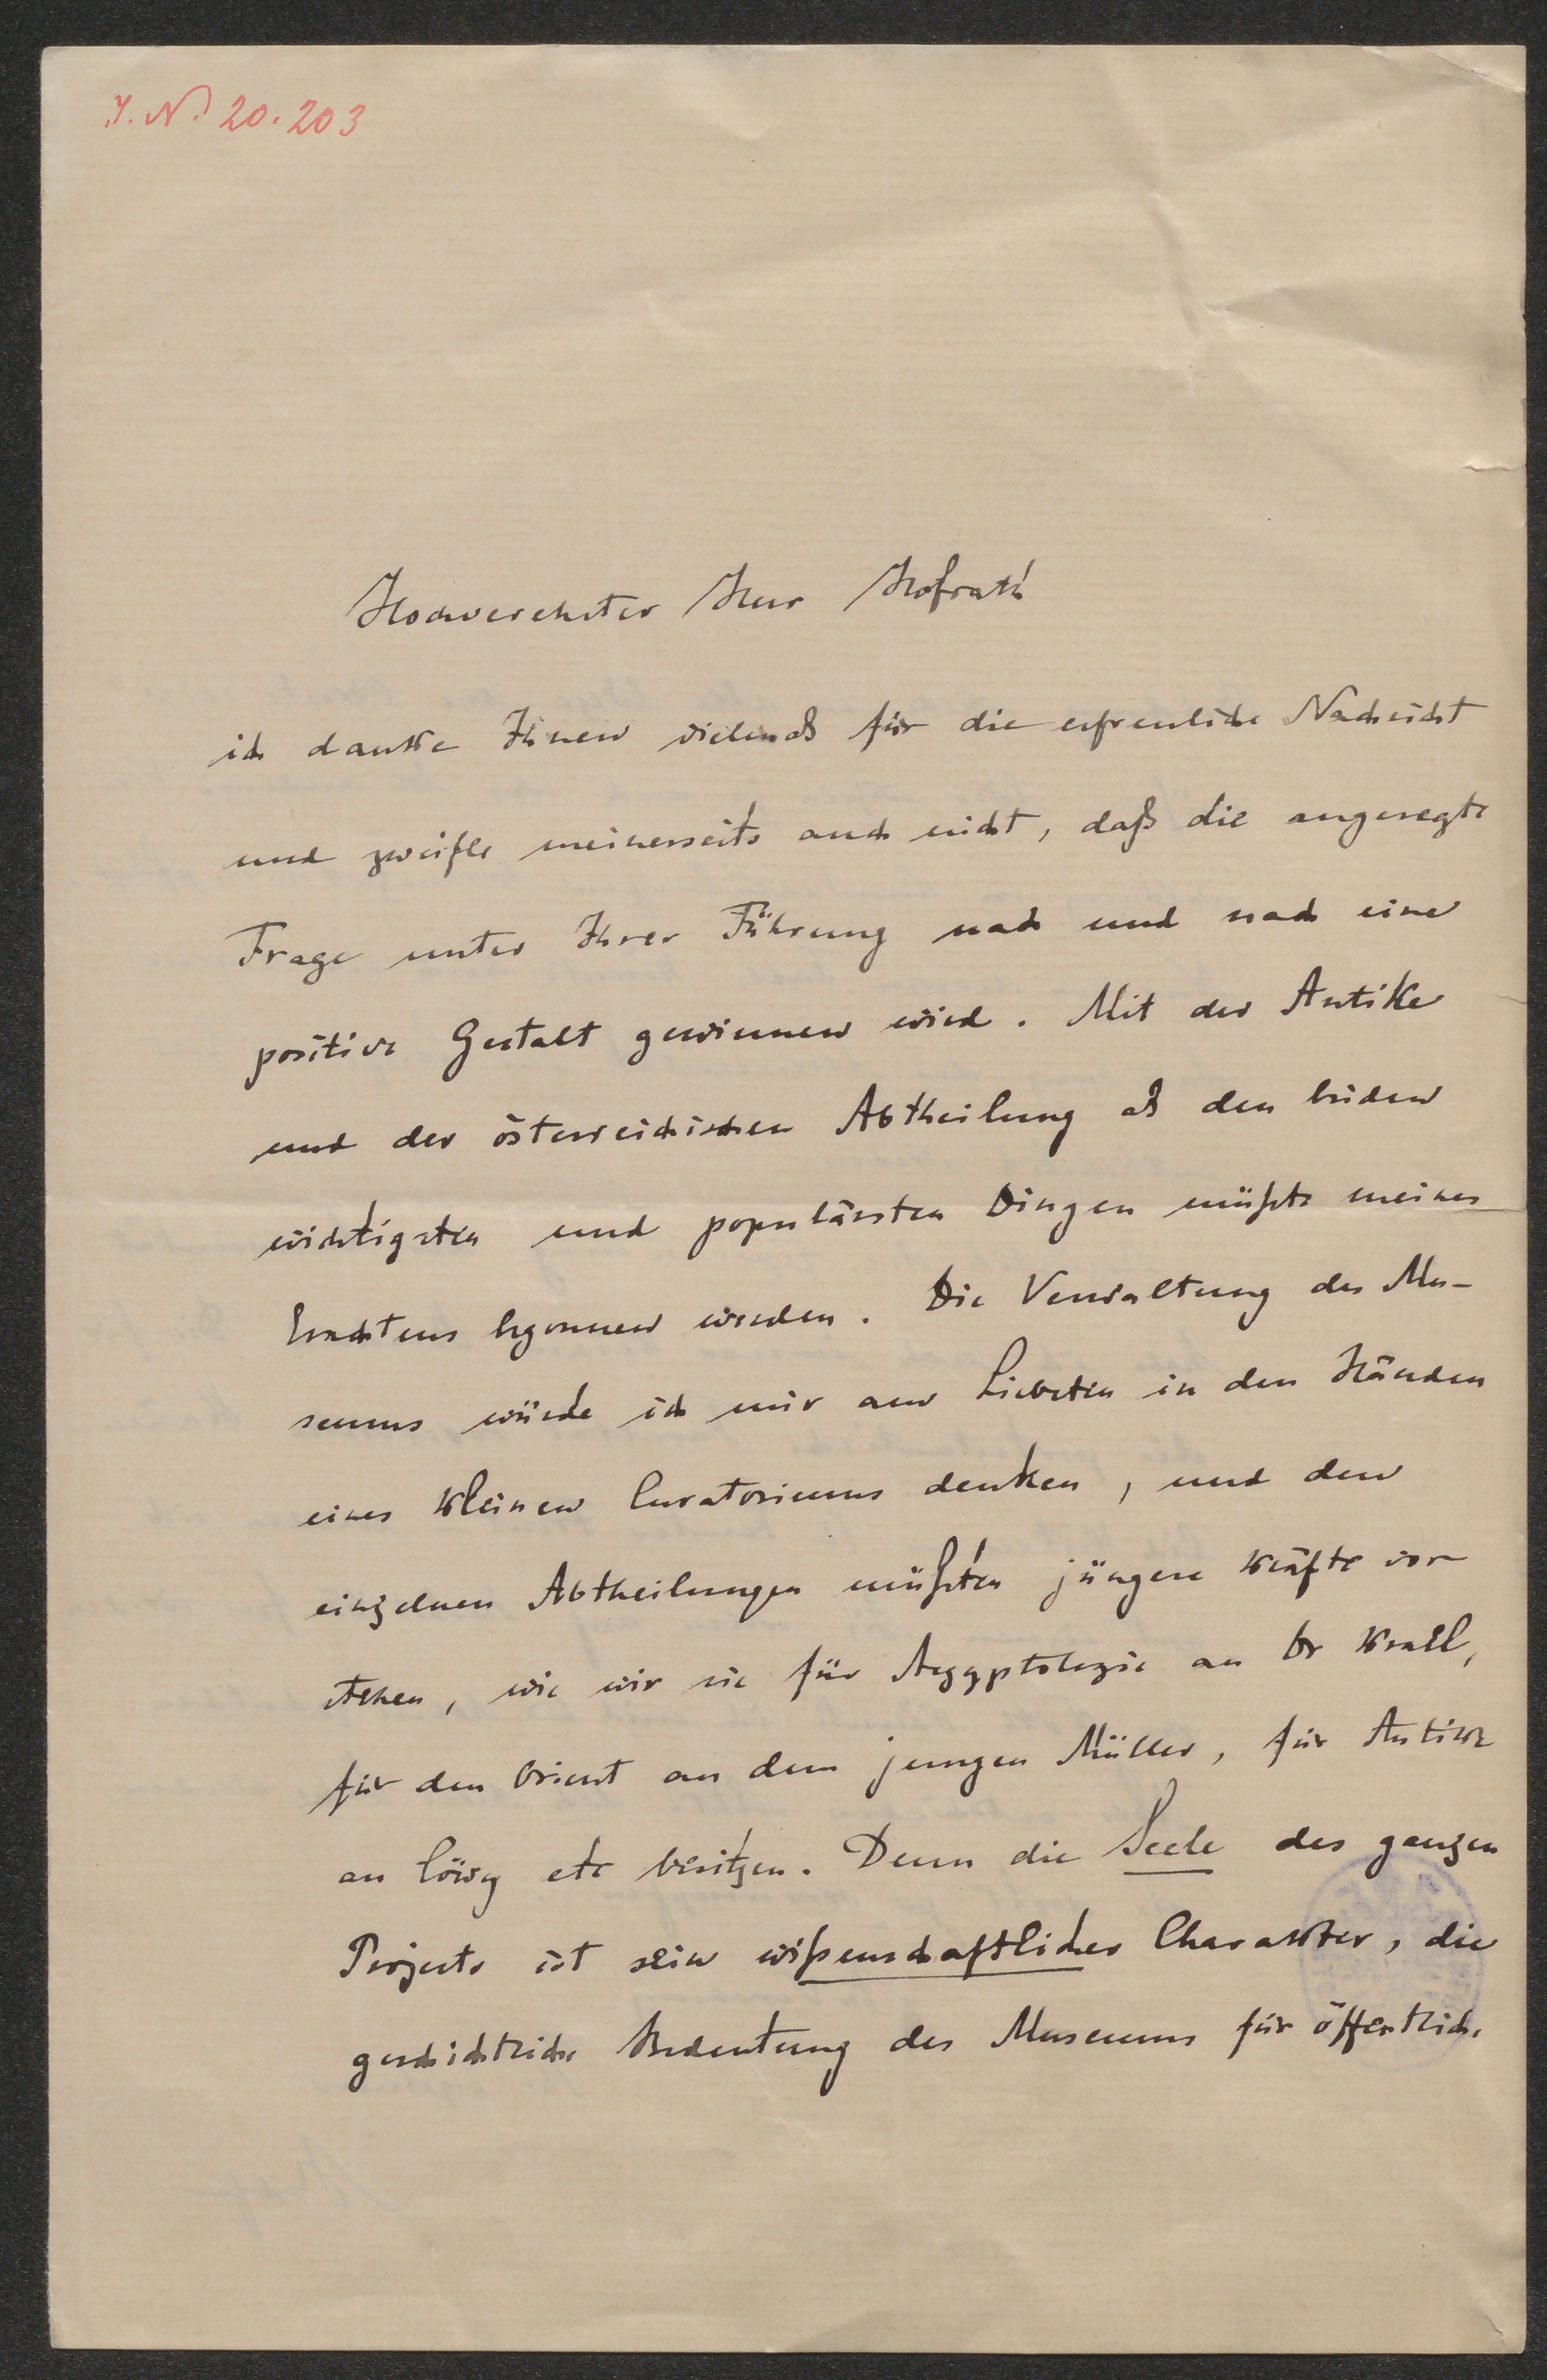 J. N. 20.203
Hochverehrter Herr Hofrath
ich danke Ihnen vielmals für die erfreuliche Nachricht
und zweifle meinerseits auch nicht, daß die angeregte
Frage unter Ihrer Führung nach und nach eine
positive Gestalt gewinnen wird. Mit der Antike
und der österreichischen Abtheilung als den beiden
wichtigsten und populärsten Dingen müßte meines
Erachtens begonnen werden. Die Verwaltung des Mu-
seums würde ich mir am Liebsten in den Händen
eines kleinen Curatoriums denken, und den
einzelnen Abtheilungen müßten jüngere Kräfte vor
stehen, wie wir sie für Aegyptologie an Dr Krall,
für den Orient an dem jungen Müller, für Antike
an Löwy etc besitzen. Denn die Seele des ganzen
Projects ist sein wißenschaftlicher Charakter, die
geschichtliche Bedeutung des Museums für öffentliche